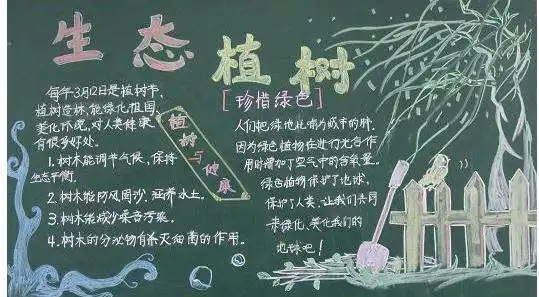 生态植树
每年3月12日是植树节,
植树造林,能绿化祖国,
美化环境,对人类健康
有很多好处。
1.树木能调节气候,保持
生态平衡.
2.树木能防风固沙,涵养水土.
3.树木能减少噪音污染.
4.树木的分泌物有杀灭细菌的作用。
植树与健康
[珍惜绿色]
人们把绿地比喻为城市的肺.
因为绿色植物在进行光合作
用时增加了空气中的含氧量.
绿色植物保护了地球,
保护了人类,让我们共同
来绿化、美化我们的
地球吧!